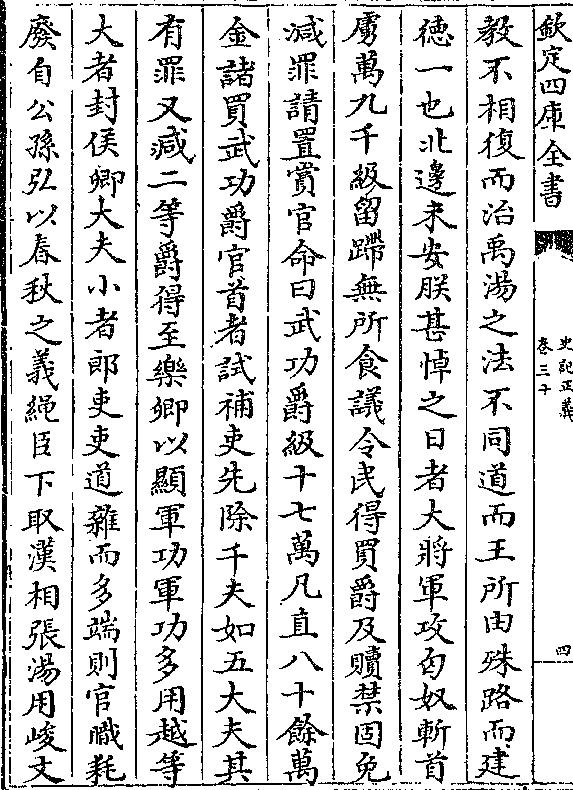 欽定四庫全書
史記正義
卷三十
四
教不相復而治禹湯之法不同道而王所由殊路而建
徳一也北邊未安朕甚悼之日者大將軍攻匈奴斬首
虜萬九千級留蹛無所食議令民得買爵及贖禁固免
減罪請置賞官命曰武功爵級十七萬凡直八十餘萬
金諸買武功爵官首者試補吏先除千夫如五大夫其
有罪又減二等爵得至樂卿以顯軍功軍功多用越等
大者封侯卿大夫小者郎吏吏道雜而多端則官職耗
廢自公孫弘以春秋之義繩臣下取漢相張湯用峻文